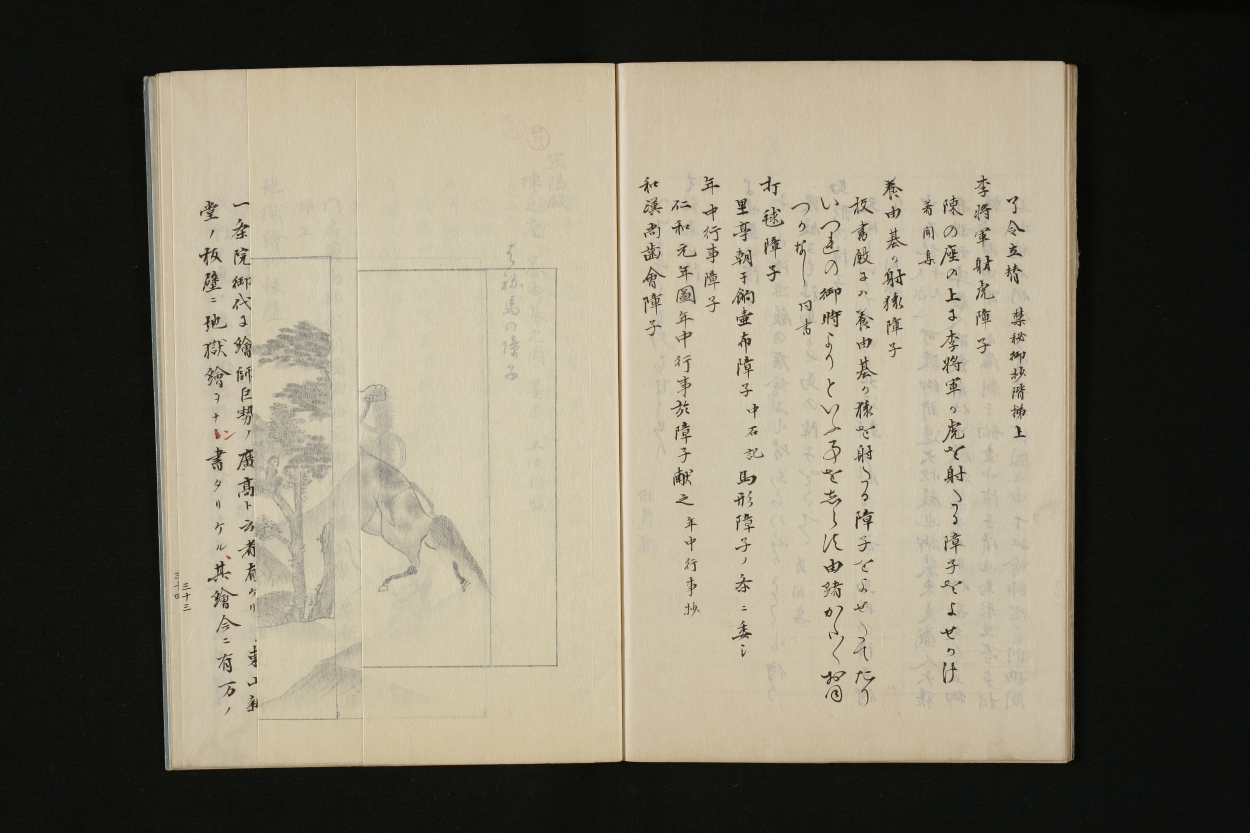 了令立替 禁秘御抄階梯上
李将軍射虎障子
陳の座の上に李将軍か虎を射たる障子をよせかけ
著聞集
養由基射猿障子
校書殿には養由基か猿を射たる障子をよせたてたり
いつれの御時よりといふ事をしらす由緒
つかなし 同書
打毬障子
里亭朝干餉壷布障子 中右記 馬形障子ノ条ニ委シ
年中行事障子
仁和元年圖年中行事於障子献之 年中行事抄
和漢尚歯會障子
はね馬の障子
一条院御代に繪師巨勢ノ廣高ト云者有ケリ
堂ノ板壁ニ地獄繪ヲナン書タリケル、其繪今ニ有万ノ
三十三
三十四